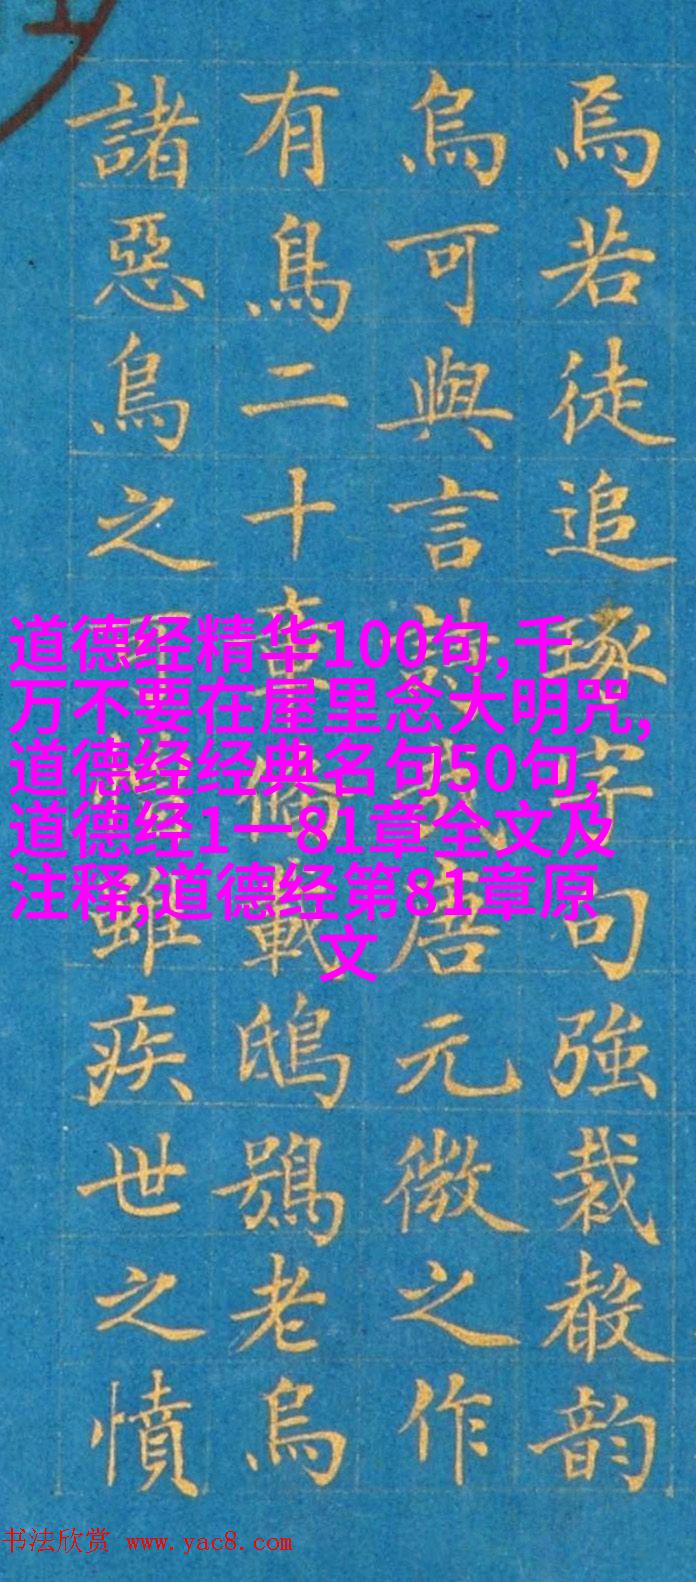 焉若徒追琢字句強裁散韵
烏可與言詩哉唐元微之作
有鳥二十章備載鴟鴞老烏
諸惡鳥之雖疾世之憤
道德经精华100句,千
万不要在屋里念大明咒,
道德经经典名句50句,
道德经1一81章全文及
注释,道德经第81章原
文
书法欣赏 www.yac8.com